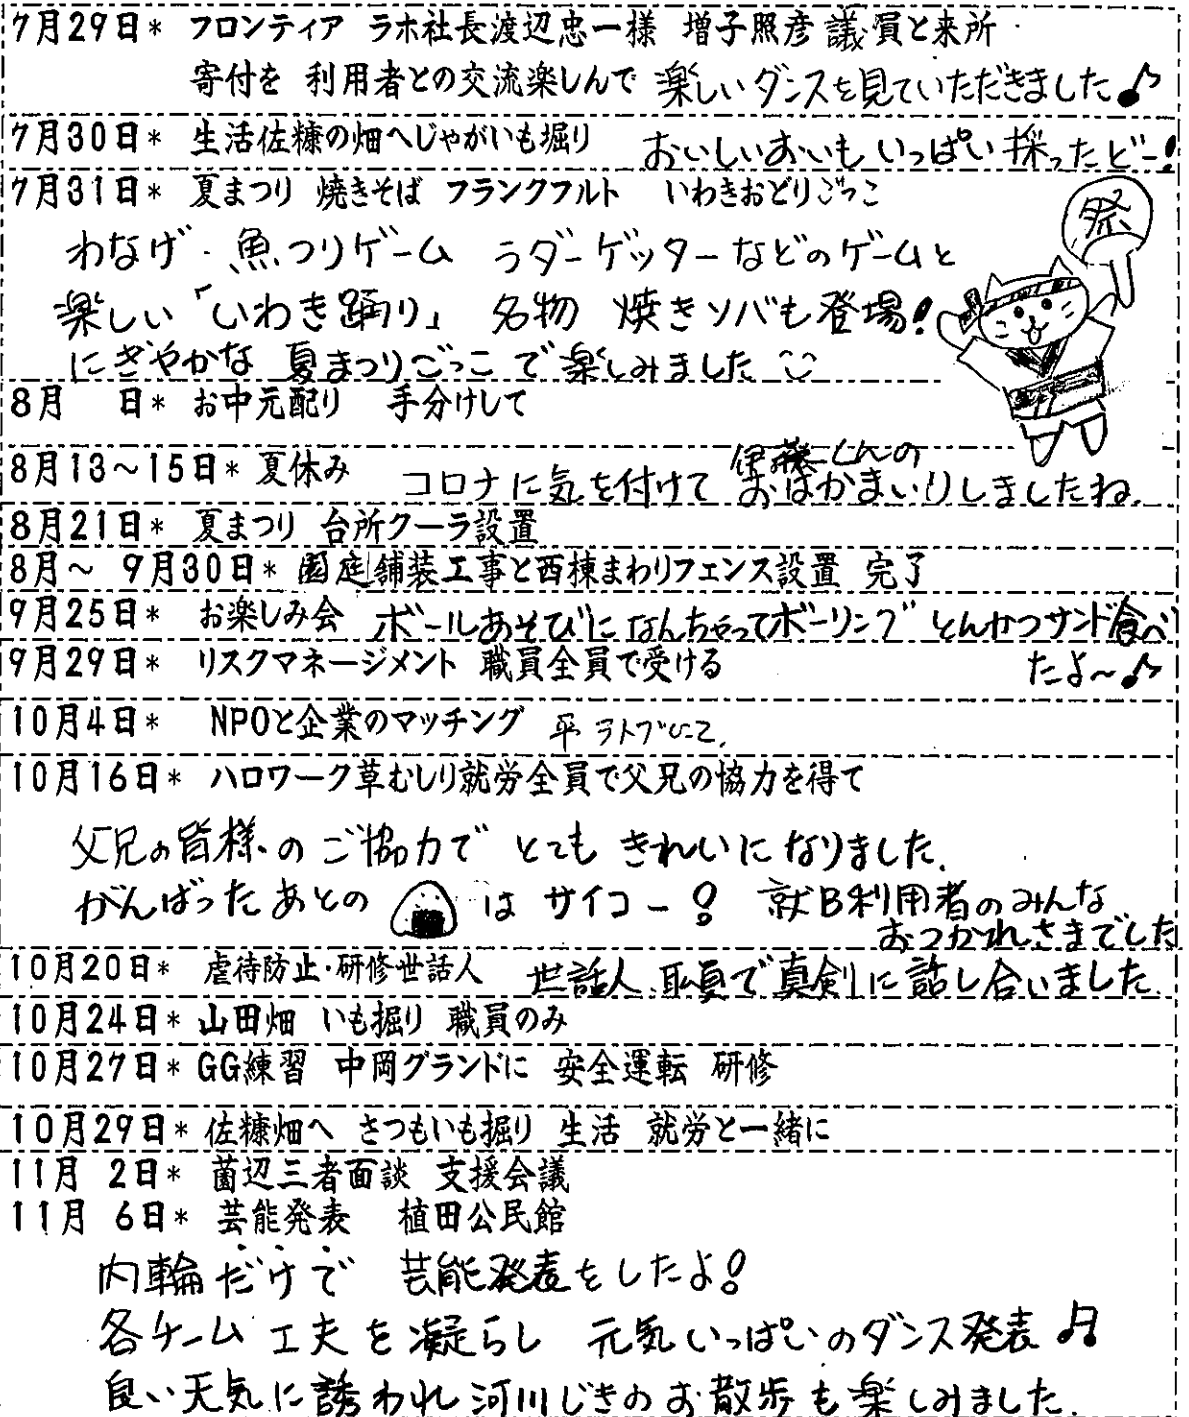 7月29日* フロンティア ラホ社長渡辺忠一様 増子照彦議員と来所
寄付を 利用者との交流楽しんで 楽しいダンスを見ていただきました♪
7月30日* 生活佐糠の畑へじゃがいも堀り おいしいおいも いっぱい採ったどー!
7月31日* 夏まつり 焼きそば フランクフルト いわきおどりごっこ
祭
わなげ・魚つりゲーム ラダーゲッターなどのゲームと
楽しい「いわき踊り」 名物 焼きソバも登場!
にぎやかな 夏まつりごっこ で楽しみました
8月 日* お中元配り 手分けして
8月13~15日* 夏休み コロナに気を付けて 伊藤くんの おはかまいりしましたね.
8月21日* 夏まつり 台所クーラ設置
8月~ 9月30日* 園庭舗装工事と西棟まわりフェンス設置 完了
9月25日* お楽しみ会 ボールあそびに なんちゃってボーリング とんかつサンド食べ
たよ~♪
9月29日* リスクマネージメント 職員全員で受ける
10月4日* NPOと企業のマッチング 平 ラトブにて.
10月16日* ハロワーク草むしり就労全員で父兄の協力を得て
父兄の皆様のご協力で とても きれいになりました.
がんばったあとの は サイコー! 就B利用者のみんな
おつかれさまでした
10月20日* 虐待防止・研修世話人 世話人、職員で真剣に話し合いました.
10月24日* 山田畑 いも掘り 職員のみ
10月27日* GG練習 中岡グランドに 安全運転 研修
10月29日* 佐糠畑へ さつもいも掘り 生活 就労と一緒に
11月 2日* 薗辺三者面談 支援会議
11月 6日* 芸能発表 植田公民館
内輪だけで 芸能発表をしたよ!
各チーム 工夫を凝らし 元気いっぱいのダンス発表♫
良い天気に誘われ河川じきのお散歩も楽しみました.